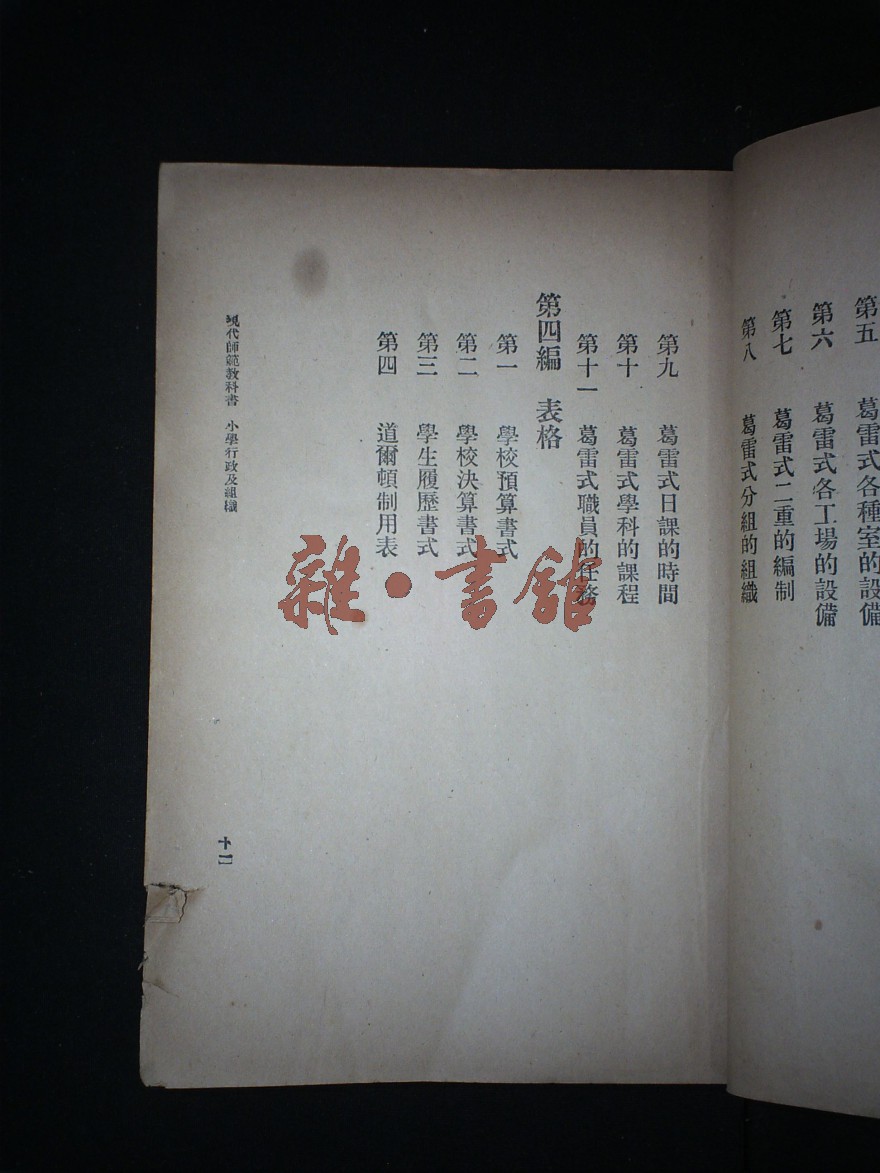 第五　葛雷式各種室的設備
第六　葛雷式各工場的設備
第七　葛雷式二重的編制
第八　葛雷式分組的組織
第九　葛雷式日課的時間
第十　葛雷式學科的課程
第十一　葛雷式職員的任務
第四編　表格
第一　學校預算書式
第二　學校決算書式
第三　學生履歷書式
第四　道爾頓制用表
現代師範教科書　小學行政及組織
十二
雜·書館